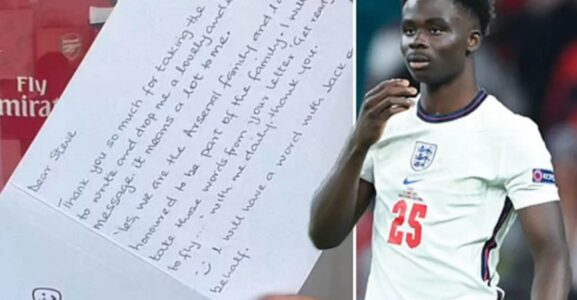 Fly
Emirates
Dear Steve
Thank you so much for taking the
to write and drop me a lovely and
message. it means a lot to me.
Yes, we are the Arsenal family and I
honoured to be part of the family. I will
take those words from your letter. Get ready
to fly... with me daily. thank you.
I will have a word with Jack o
behalf.
25